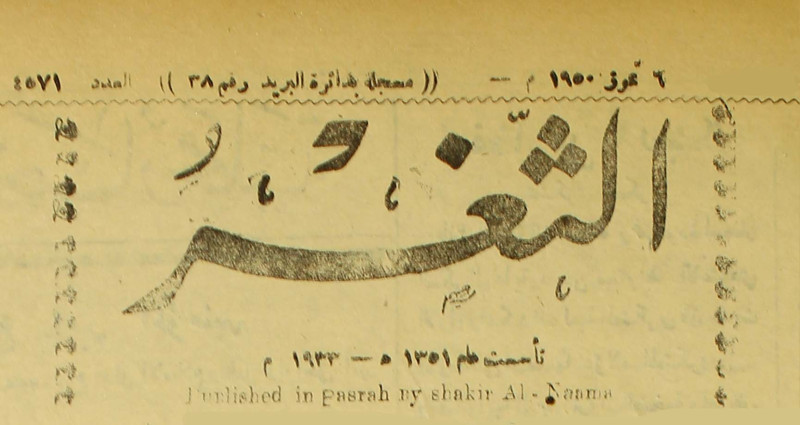 ٦ تموز ١٩٥٠ م — (( مسجلة بدائرة البريد رقم ٣٨ )) العدد ٤٥٧١
الثغر
تأسست عام ١٣٥١ ه — ١٩٣٣ م
Published in Basrah By shakir Al - Naama